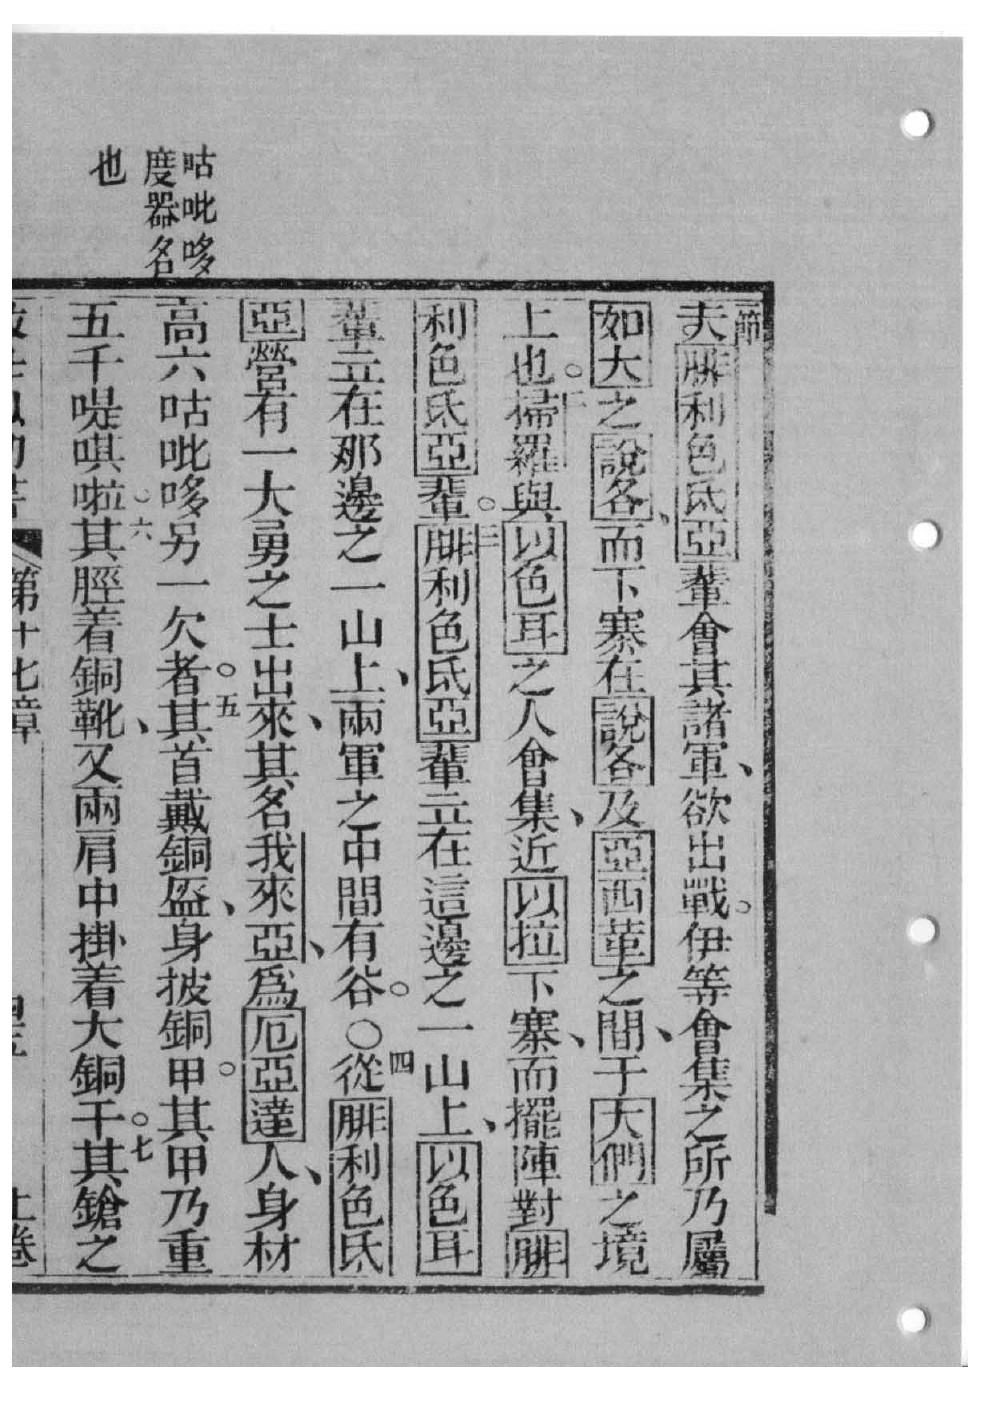 咕吡哆
度器名
也
節
夫腓利色氐亞輩會其諸軍、欲出戰。伊等會集之所乃屬
如大之說各、而下寨在說各及亞西革之間、于大們之境
上也。二掃羅與以色耳之人會集、近以拉下寨、而擺陣對腓
利色氐亞輩。三腓利色氐亞輩立在這邊之一山上、以色耳
輩立在那邊之一山上、兩軍之中間有谷。○四從腓利色氐
亞營有一大勇之士出來、其名我來亞、為厄亞達人、身材
高六咕吡哆另一欠者。五其首戴銅盔、身披銅甲。其甲乃重
五千㖷唭啦。六其脛着銅靴、又兩肩中掛着大銅干。七其鎗之
第十七章
上卷